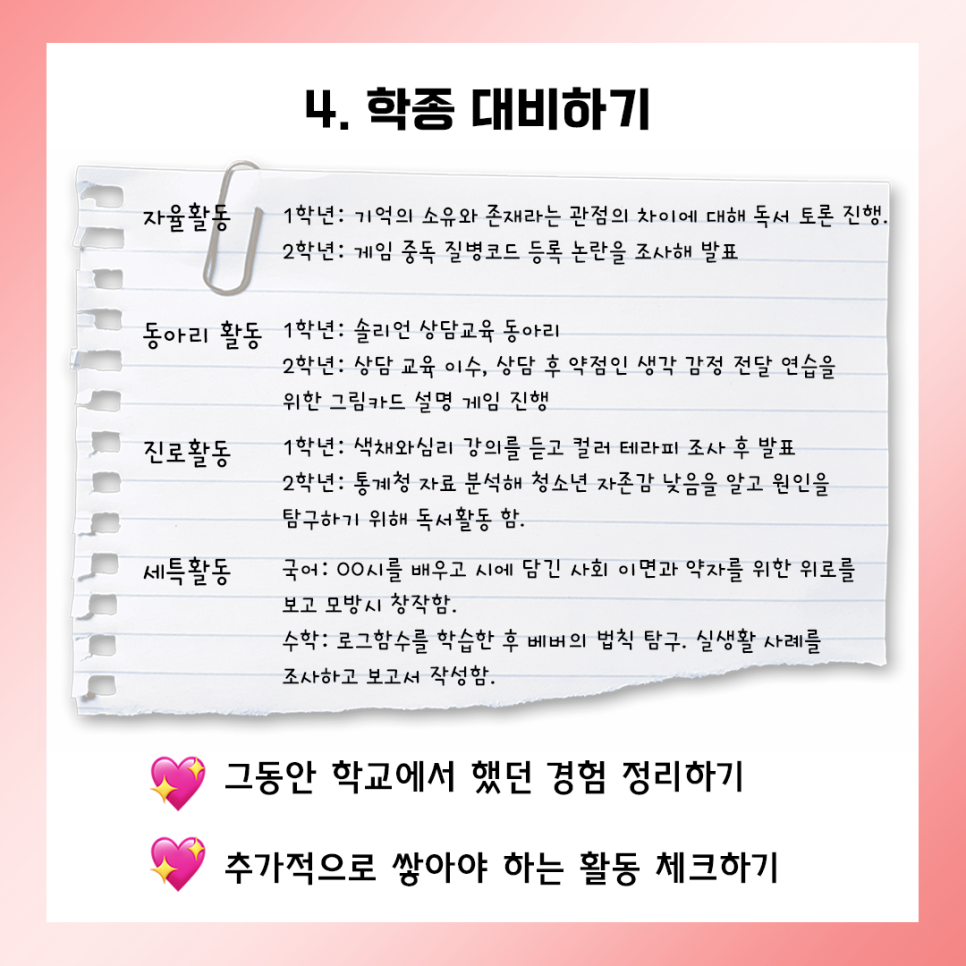 4. 학종 대비하기
자율활동 1학년: 기억의 소유와 존재라는 관점의 차이에 대해 독서 토론 진행.
2학년: 게임 중독 질병코드 등록 논란을 조사해 발표
동아리 활동 1학년: 솔리언 상담교육 동아리
2학년: 상담 교육 이수, 상담 후 약점인 생각 감정 전달 연습을
위한 그림카드 설명 게임 진행
진로활동 1학년: 색채와심리 강의를 듣고 컬러 테라피 조사 후 발표
2학년: 통계청 자료 분석해 청소년 자존감 낮음을 알고 원인을
탐구하기 위해 독서활동 함.
세특활동 국어: OO시를 배우고 시에 담긴 사회 이면과 약자를 위한 위로를
보고 모방시 창작함.
수학: 로그함수를 학습한 후 베버의 법칙 탐구. 실생활 사례를
조사하고 보고서 작성함.
그동안 학교에서 했던 경험 정리하기
추가적으로 쌓아야 하는 활동 체크하기